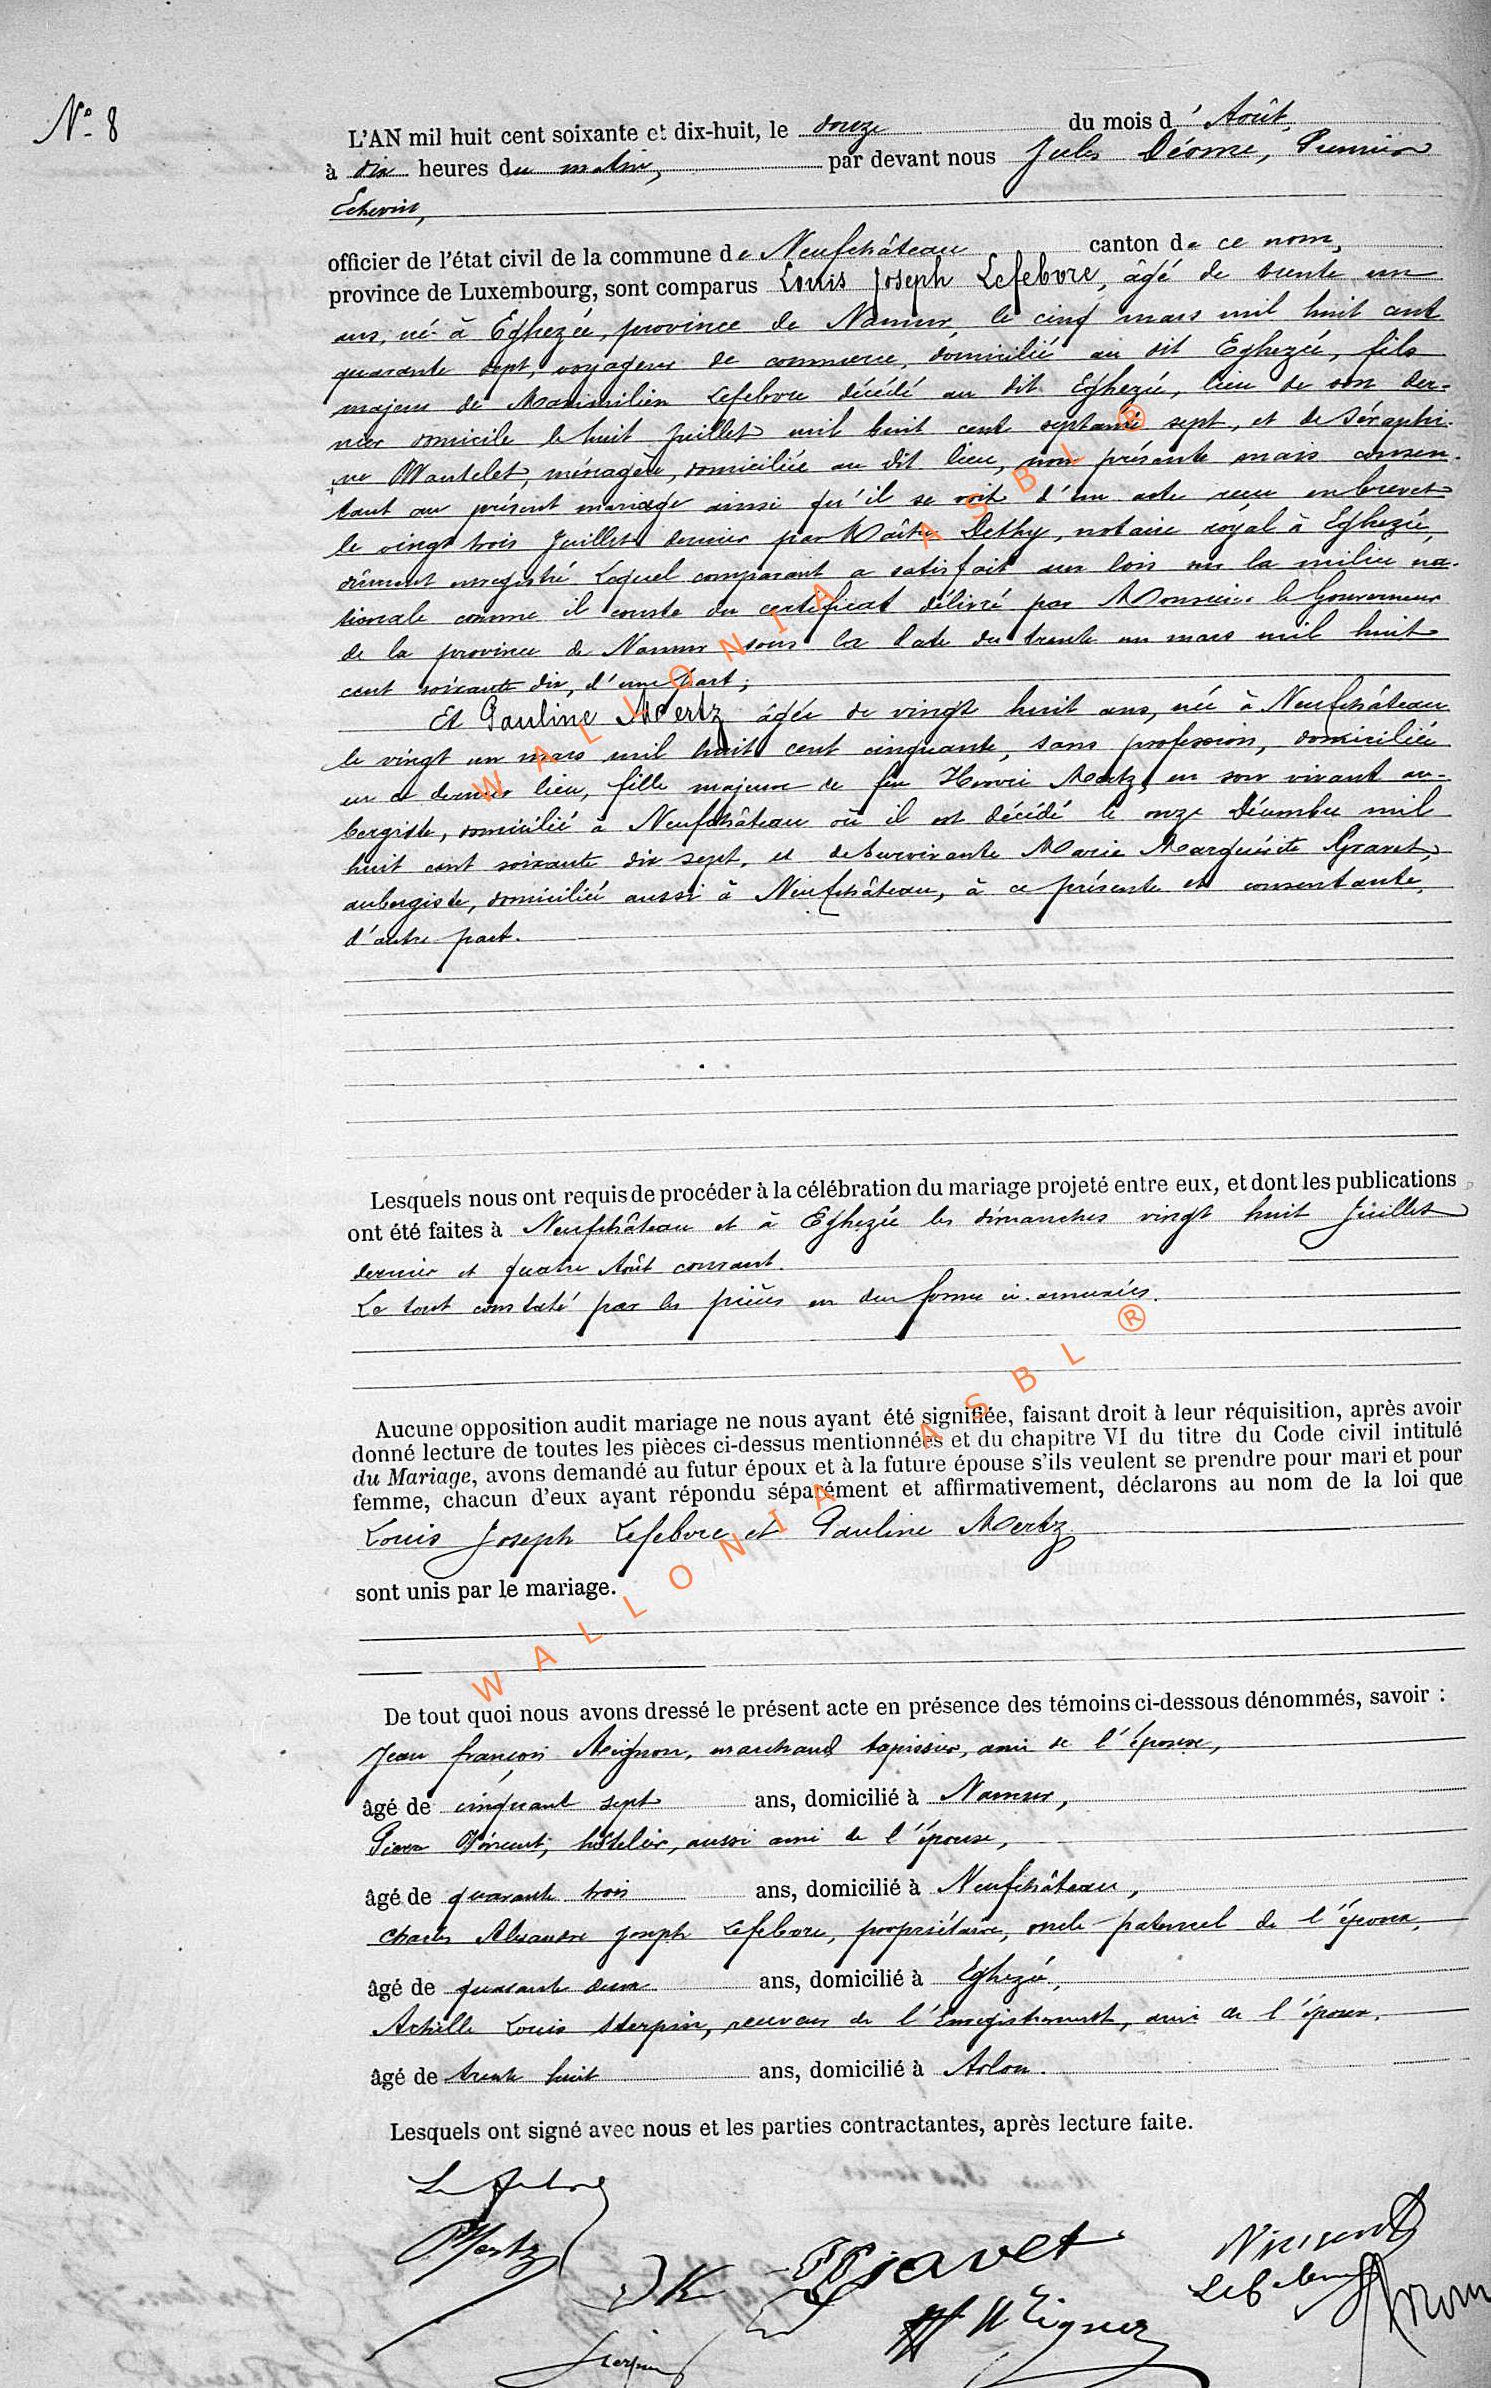 N° 8
L'AN mil huit cent soixante et dix-huit, le douze du mois d'Août,
à dix heures du matin, par devant nous Jules Déome, Premier
Echevin,
officier de l'état civil de la commune de Neufchâteau canton de ce nom,
province de Luxembourg, sont comparus Louis Joseph Lefebvre, âgé de trente un
ans, né à Eghezée, province de Namur, le cinq mars mil huit cent
quarante sept, voyageur de commerce, domicilié au dit Eghezée, fils
majeur de Maximilien Lefebvre décédé au dit Eghezée, lieu de son der-
nier domicile le huit Juillet mil huit cent septante sept, et de Séraphi-
ne Mautelet, ménagère, domiciliée au dit lieu, non présente mais consen-
tant au présent mariage ainsi qu'il se voit d'un acte reçu en brevet
le vingt trois Juillet dernier par Maître Dethy, notaire royal à Eghezée,
dûment enregistré. Lequel comparant a satisfait aux lois sur la milice na-
tionale comme il conste du certificat délivré par Monsieur le Gouverneur
de la province de Namur sous la date du trente un mars mil huit
cent soixante dix, d'une part;
Et Pauline Mertz âgée de vingt huit ans, née à Neufchâteau
le vingt un mars mil huit cent cinquante, sans profession, domiciliée
en ce dernier lieu, fille majeure de feu Henri Mertz, en son vivant au-
bergiste, domicilié à Neufchâteau où il est décédé le onze Décembre mil
huit cent soixante dix sept, et de survivante Marie Marguérite Gravet,
aubergiste, domicilié aussi à Neufchâteau, à ce présente et consentante,
d'autre part.
Lesquels nous ont requis de procéder à la célébration du mariage projeté entre eux, et dont les publications
ont été faites à Neufchâteau et à Eghezée les dimanches vingt huit Juillet
dernier et quatre Août courant.
Le tout constaté par les pièces en due forme ci-annexées.
Aucune opposition audit mariage ne nous ayant été signifiée, faisant droit à leur réquisition, après avoir
donné lecture de toutes les pièces ci-dessus mentionnées et du chapitre VI du titre du Code civil intitulé
du Mariage, avons demandé au futur époux et à la future épouse s'ils veulent se prendre pour mari et pour
femme, chacun d'eux ayant répondu séparément et affirmativement, déclarons au nom de la loi que
Louis Joseph Lefebvre et Pauline Mertz
sont unis par le mariage.
De tout quoi nous avons dressé le présent acte en présence des témoins ci-dessous dénommés, savoir :
Jean françois Mignon, marchand tapissier, ami de l'épouse,
âgé de cinquant sept ans, domicilié à Namur,
Pierre Vincent, hôtelier, aussi ami de l'épouse,
âgé de quarante trois ans, domicilié à Neufchâteau,
Charles Alexandre Joseph Lefebvre, propriétaire, oncle paternel de l'époux,
âgé de quarante deux ans, domicilié à Eghezée,
Achille Louis Sterpin, receveur de l'Enregistrement, ami de l'époux,
âgé de trente huit ans, domicilié à Arlon.
Lesquels ont signé avec nous et les parties contractantes, après lecture faite.
Lefebvre
Mertz
Gravet
Vincent
Sterpin
WALLONIA ASBL ®
WALLONIA ASBL ®